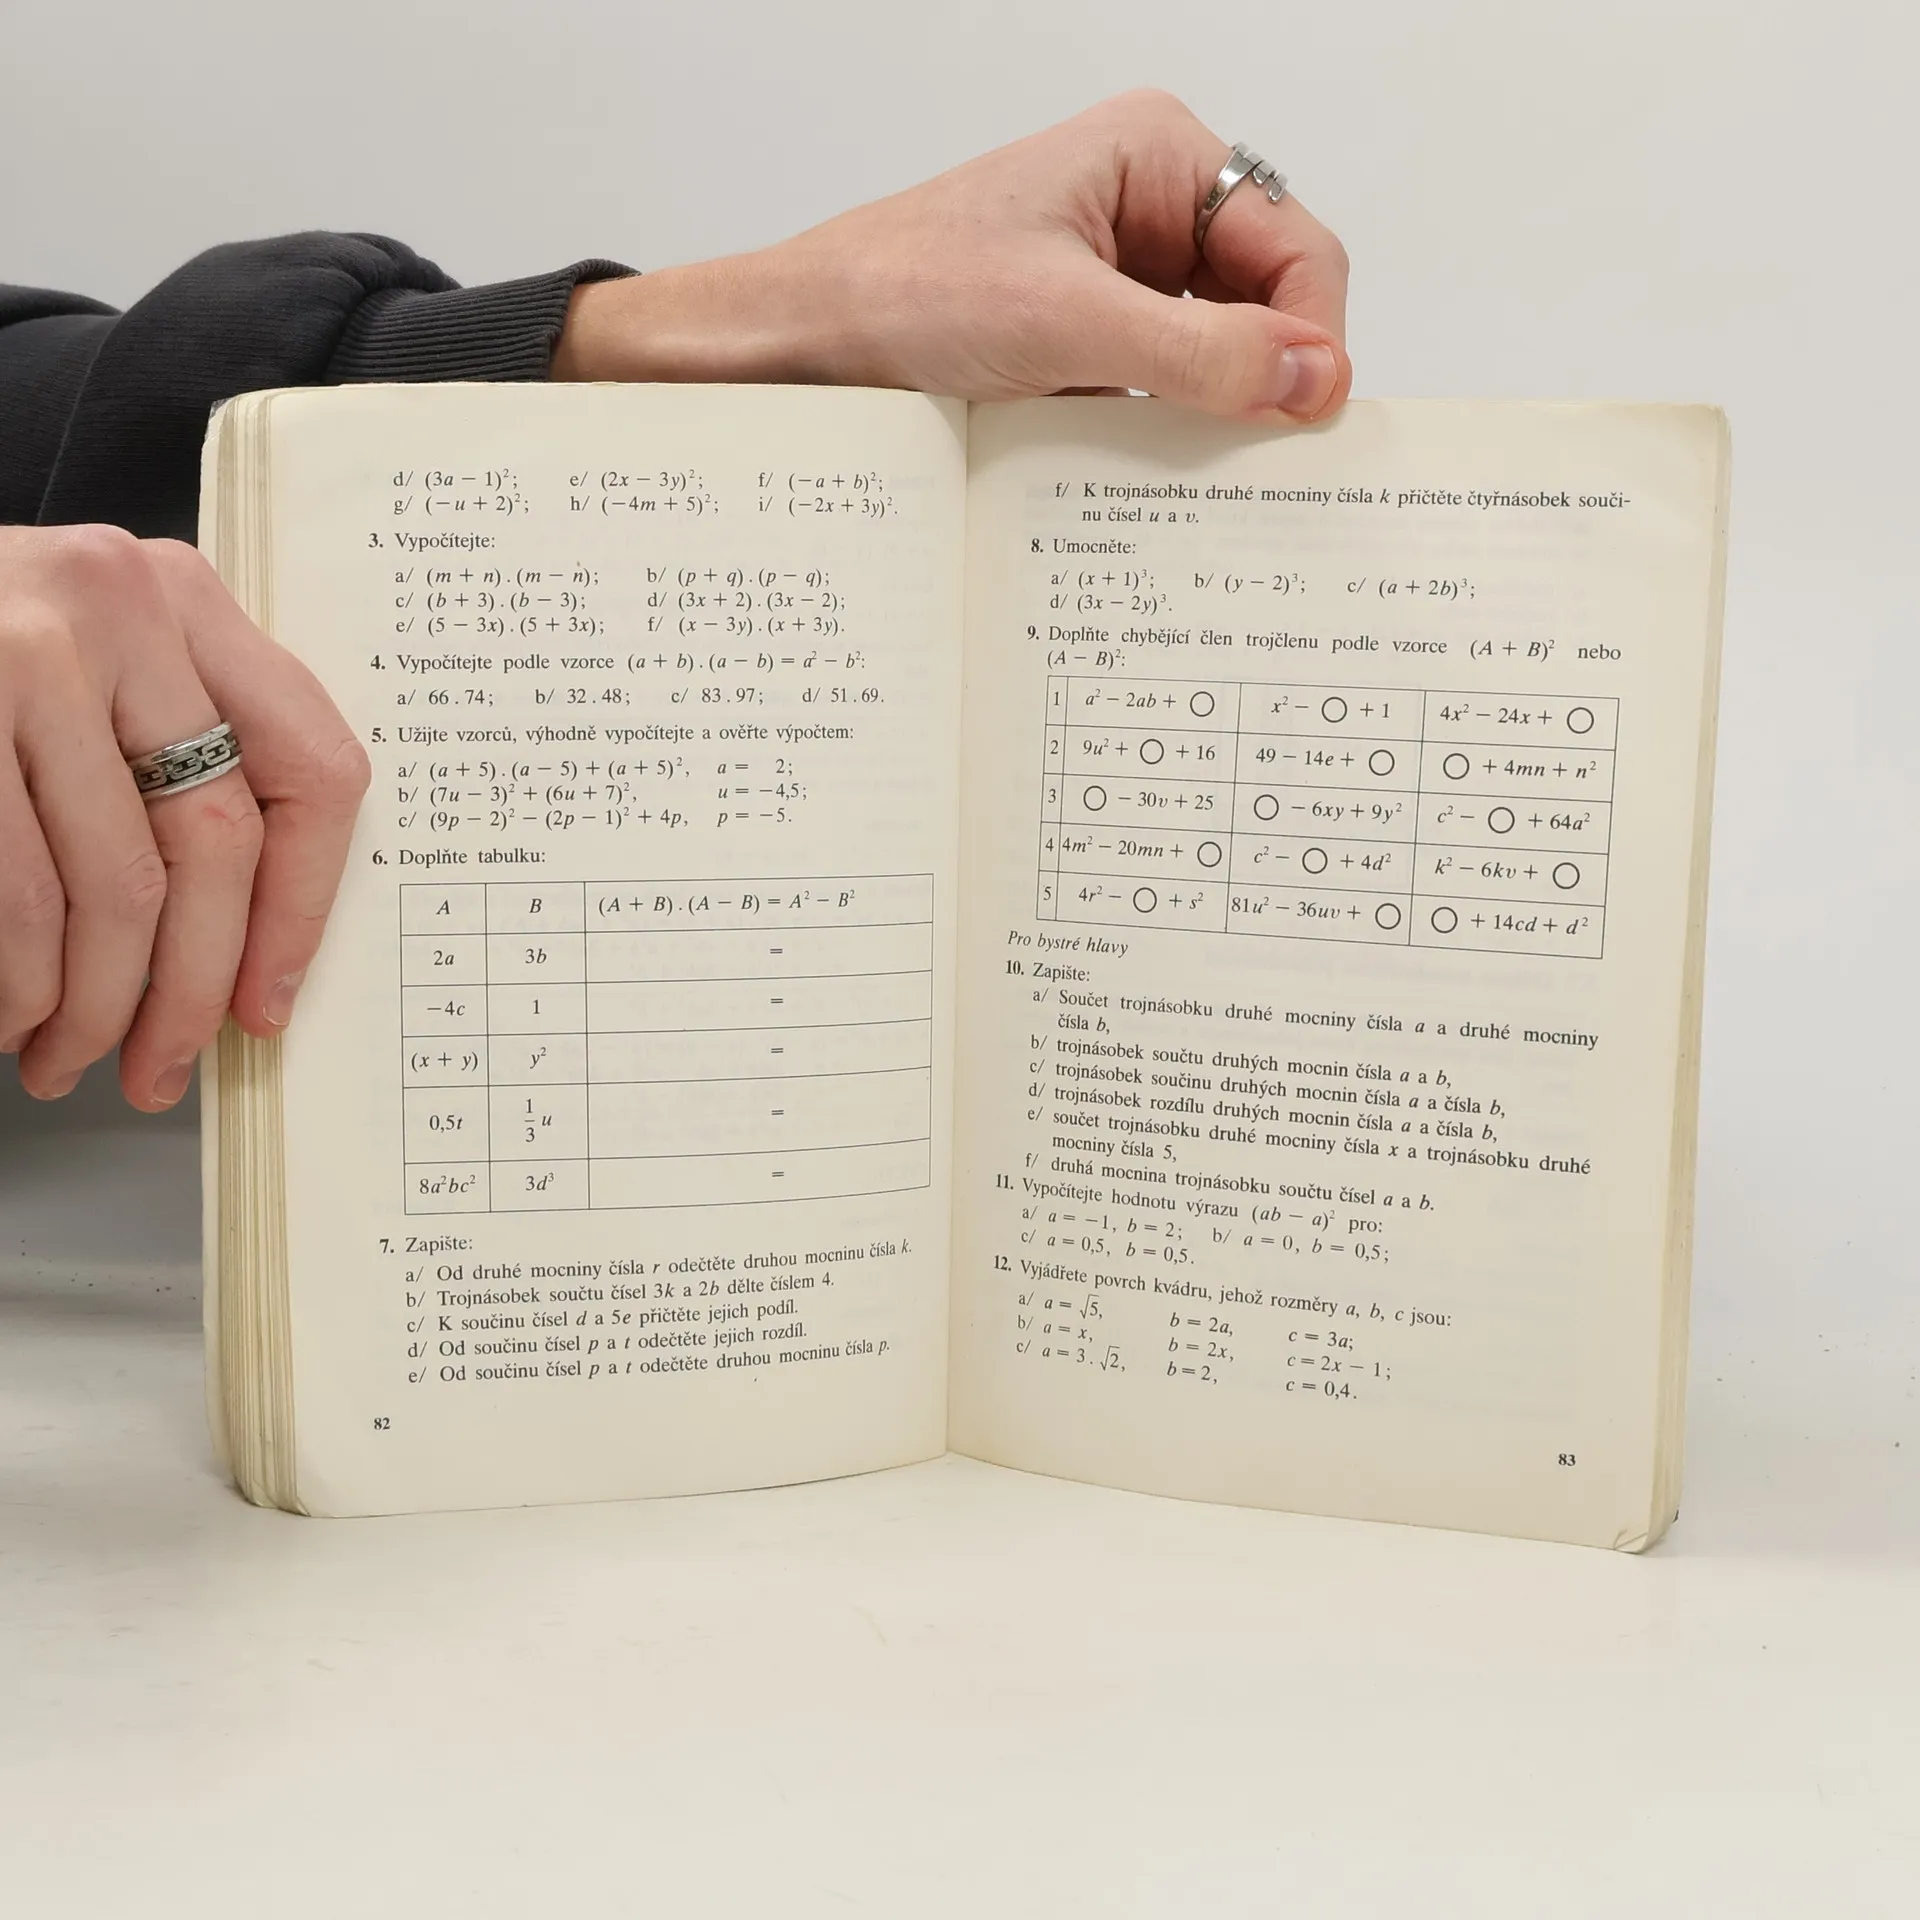 d/ (3a − 1)²; e/ (2x − 3y)²; f/ (−a + b)²;
g/ (−u + 2)²; h/ (−4m + 5)²; i/ (−2x + 3y)².
3. Vypočítejte:
a/ (m + n).(m − n); b/ (p + q).(p − q);
c/ (b + 3).(b − 3); d/ (3x + 2).(3x − 2);
e/ (5 − 3x).(5 + 3x); f/ (x − 3y).(x + 3y).
4. Vypočítejte podle vzorce (a + b).(a − b) = a² − b²:
a/ 66.74; b/ 32.48; c/ 83.97; d/ 51.69.
5. Užijte vzorců, výhodně vypočítejte a ověřte výpočtem:
a/ (a + 5).(a − 5) + (a + 5)², a = 2;
b/ (7u − 3)² + (6u + 7)², u = −4,5;
c/ (9p − 2)² − (2p − 1)² + 4p, p = −5.
6. Doplňte tabulku:
A B (A + B).(A − B) = A² − B²
2a 3b =
−4c 1 =
(x + y) y² =
0,5t 1/3 u =
8a²bc² 3d³ =
7. Zapište:
a/ Od druhé mocniny čísla r odečtěte druhou mocninu čísla k.
b/ Trojnásobek součtu čísel 3k a 2b dělte číslem 4.
c/ K součinu čísel d a 5e přičtěte jejich podíl.
d/ Od součinu čísel p a t odečtěte jejich rozdíl.
e/ Od součinu čísel p a t odečtěte druhou mocninu čísla p.
82
f/ K trojnásobku druhé mocniny čísla k přičtěte čtyřnásobek souči-
nu čísel u a v.
8. Umocněte:
a/ (x + 1)³; b/ (y − 2)³; c/ (a + 2b)³;
d/ (3x − 2y)³.
9. Doplňte chybějící člen trojčlenu podle vzorce (A + B)² nebo
(A − B)²:
1 a² − 2ab + ○ x² − ○ + 1 4x² − 24x + ○
2 9u² + ○ + 16 49 − 14e + ○ ○ + 4mn + n²
3 ○ − 30v + 25 ○ − 6xy + 9y² c² − ○ + 64a²
4 4m² − 20mn + ○ c² − ○ + 4d² k² − 6kv + ○
5 4r² − ○ + s² 81u² − 36uv + ○ ○ + 14cd + d²
Pro bystré hlavy
10. Zapište:
a/ Součet trojnásobku druhé mocniny čísla a a druhé mocniny
čísla b,
b/ trojnásobek součtu druhých mocnin čísla a a b,
c/ trojnásobek součinu druhých mocnin čísla a a čísla b,
d/ trojnásobek rozdílu druhých mocnin čísla a a čísla b,
e/ součet trojnásobku druhé mocniny čísla x a trojnásobku druhé
mocniny čísla 5,
f/ druhá mocnina trojnásobku součtu čísel a a b.
11. Vypočítejte hodnotu výrazu (ab − a)² pro:
a/ a = −1, b = 2; b/ a = 0, b = 0,5;
c/ a = 0,5, b = 0,5.
12. Vyjádřete povrch kvádru, jehož rozměry a, b, c jsou:
a/ a = √5, b = 2a, c = 3a;
b/ a = x, b = 2x, c = 2x − 1;
c/ a = 3.√2, b = 2, c = 0,4.
83